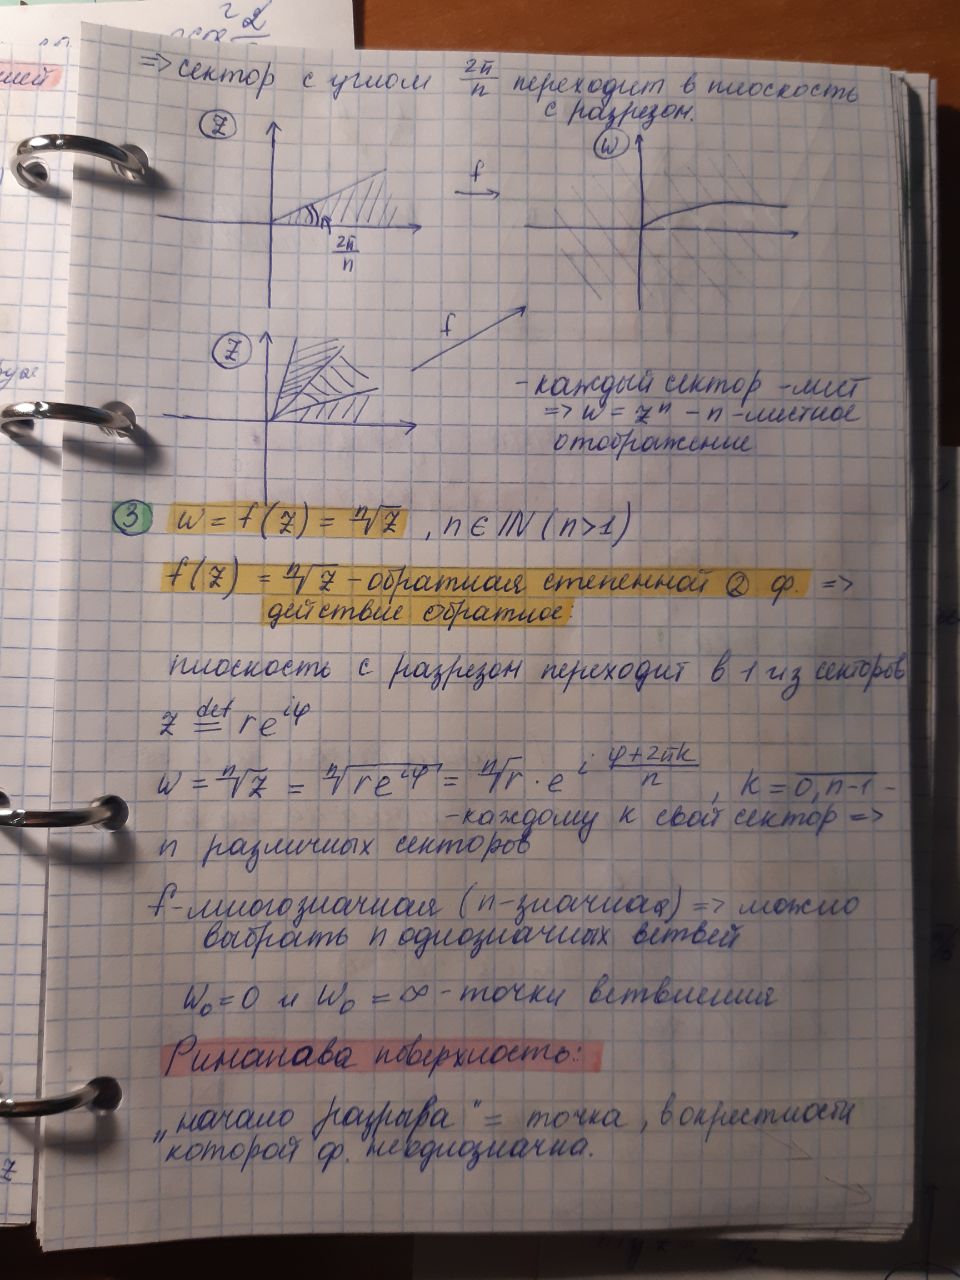 => сектор с углом 2π/n переходит в плоскость
с разрезом.
Z
f
W
2π/n
Z
f
- каждый сектор - лист
=> w = zⁿ - n - листное
отображение
3 w = f(z) = ⁿ√z , n ∈ IN (n>1)
f(z) = ⁿ√z - обратная степенной ② ф. =>
действие обратное:
плоскость с разрезом переходит в 1 из секторов
z def= re^{iφ}
w = ⁿ√z = ⁿ√(re^{iφ}) = ⁿ√r · e^{i (φ+2πk)/n} , k = 0, n-1 -
- каждому k свой сектор =>
n различных секторов
f - многозначная (n-значная) => можно
выбрать n однозначных ветвей
w₀ = 0 и w₀ = ∞ - точки ветвления
Риманава поверхность:
„начало разрыва" = точка, в окрестности
которой ф. неоднозначна.